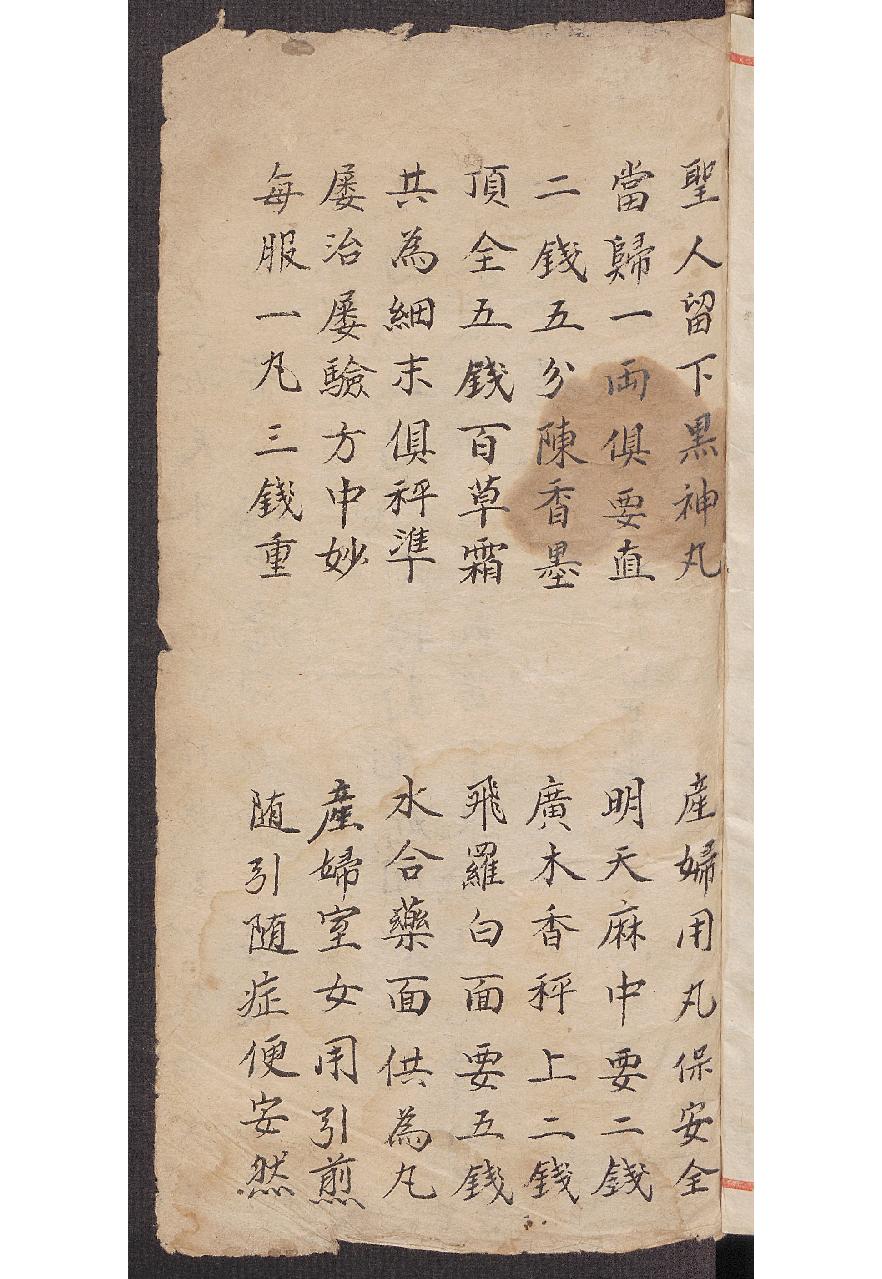 聖人留下黒神丸　產婦用丸保安全
當歸一両俱要直　明天麻中要二錢
二錢五分陳香墨　廣木香秤上二錢
頂全五錢百草霜　飛羅白面要五錢
共為細末俱秤準　水合藥面供為丸
屡治屡驗方中妙　產婦室女用引煎
每服一丸三錢重　随引随症便安然